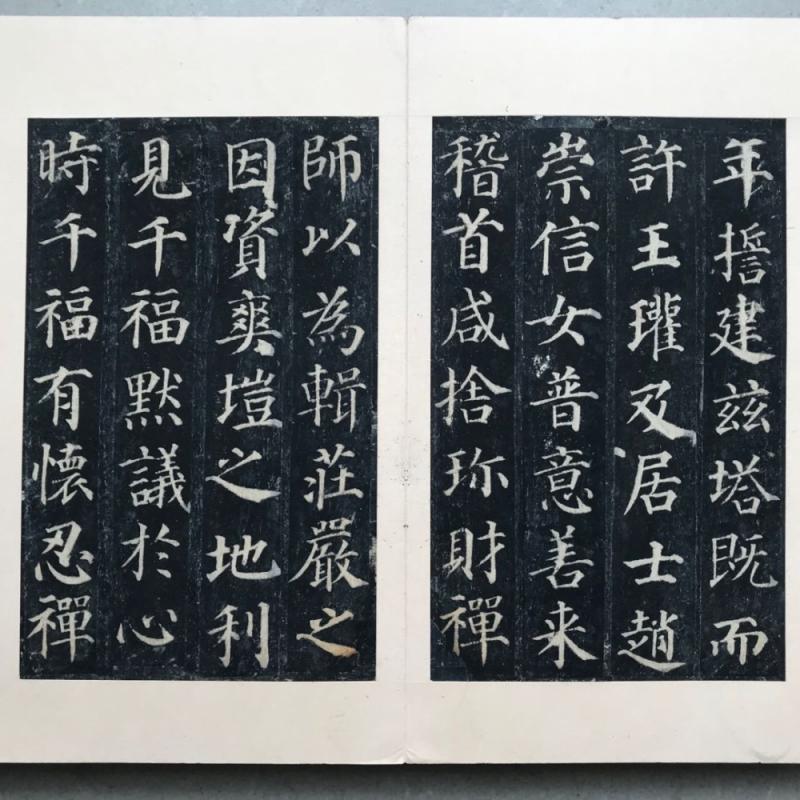 年擔建兹塔既而
許王瓘及居士趙
崇信女普意善来
稽首咸捨珎財禪
師以為輯莊嚴之
因資爽塏之地利
見千福默議於心
時千福有懷忍禪